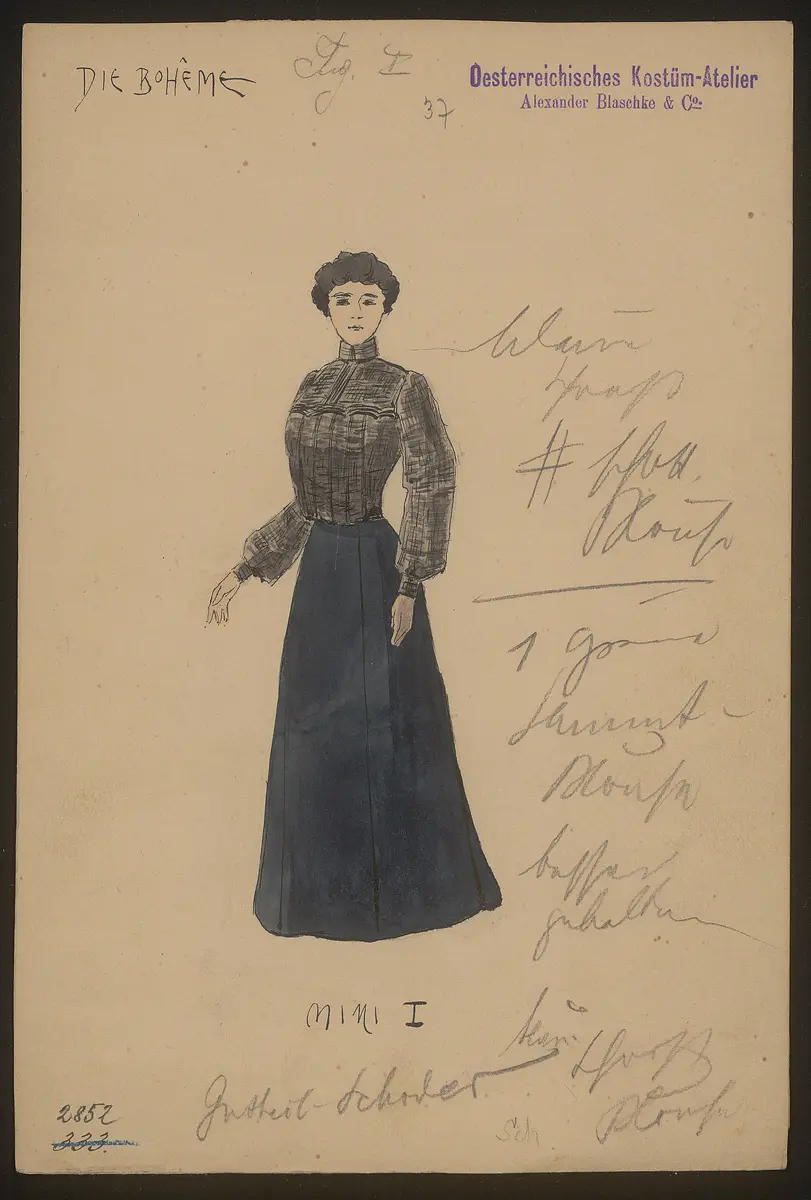 DIE BOHÊME
Fig. I
37
Oesterreichisches Kostüm-Atelier
Alexander Blaschke & Co.
# schott.
Blouse
1 grüne
Sammt-
Blouse
besser
gehalten
MIMI I
Gutheil-Schoder
Blouse
Sch
2852
333.